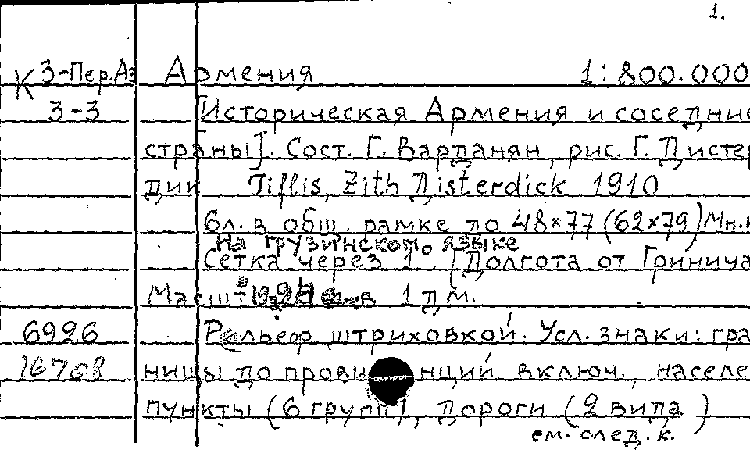 1.
К 3-Пер.Аз Армения 1:800.000
3-3 [Историческая Армения и соседние
страны]. Сост. Г. Варданян, рис. Г. Дистер
дик Tiflis, Lith Disterdick 1910
6л. в общ. рамке по 48x77 (62x79) Мн.к
на грузинском языке
Сетка через 1°. [Долгота от Гринича
Масш. 1 дм.
6926 Рельеф штриховкой. Усл. знаки: гра
16708 ницы до провинций включ., населе
пункты (6 групп), дороги (2 вида)
см. след. к.